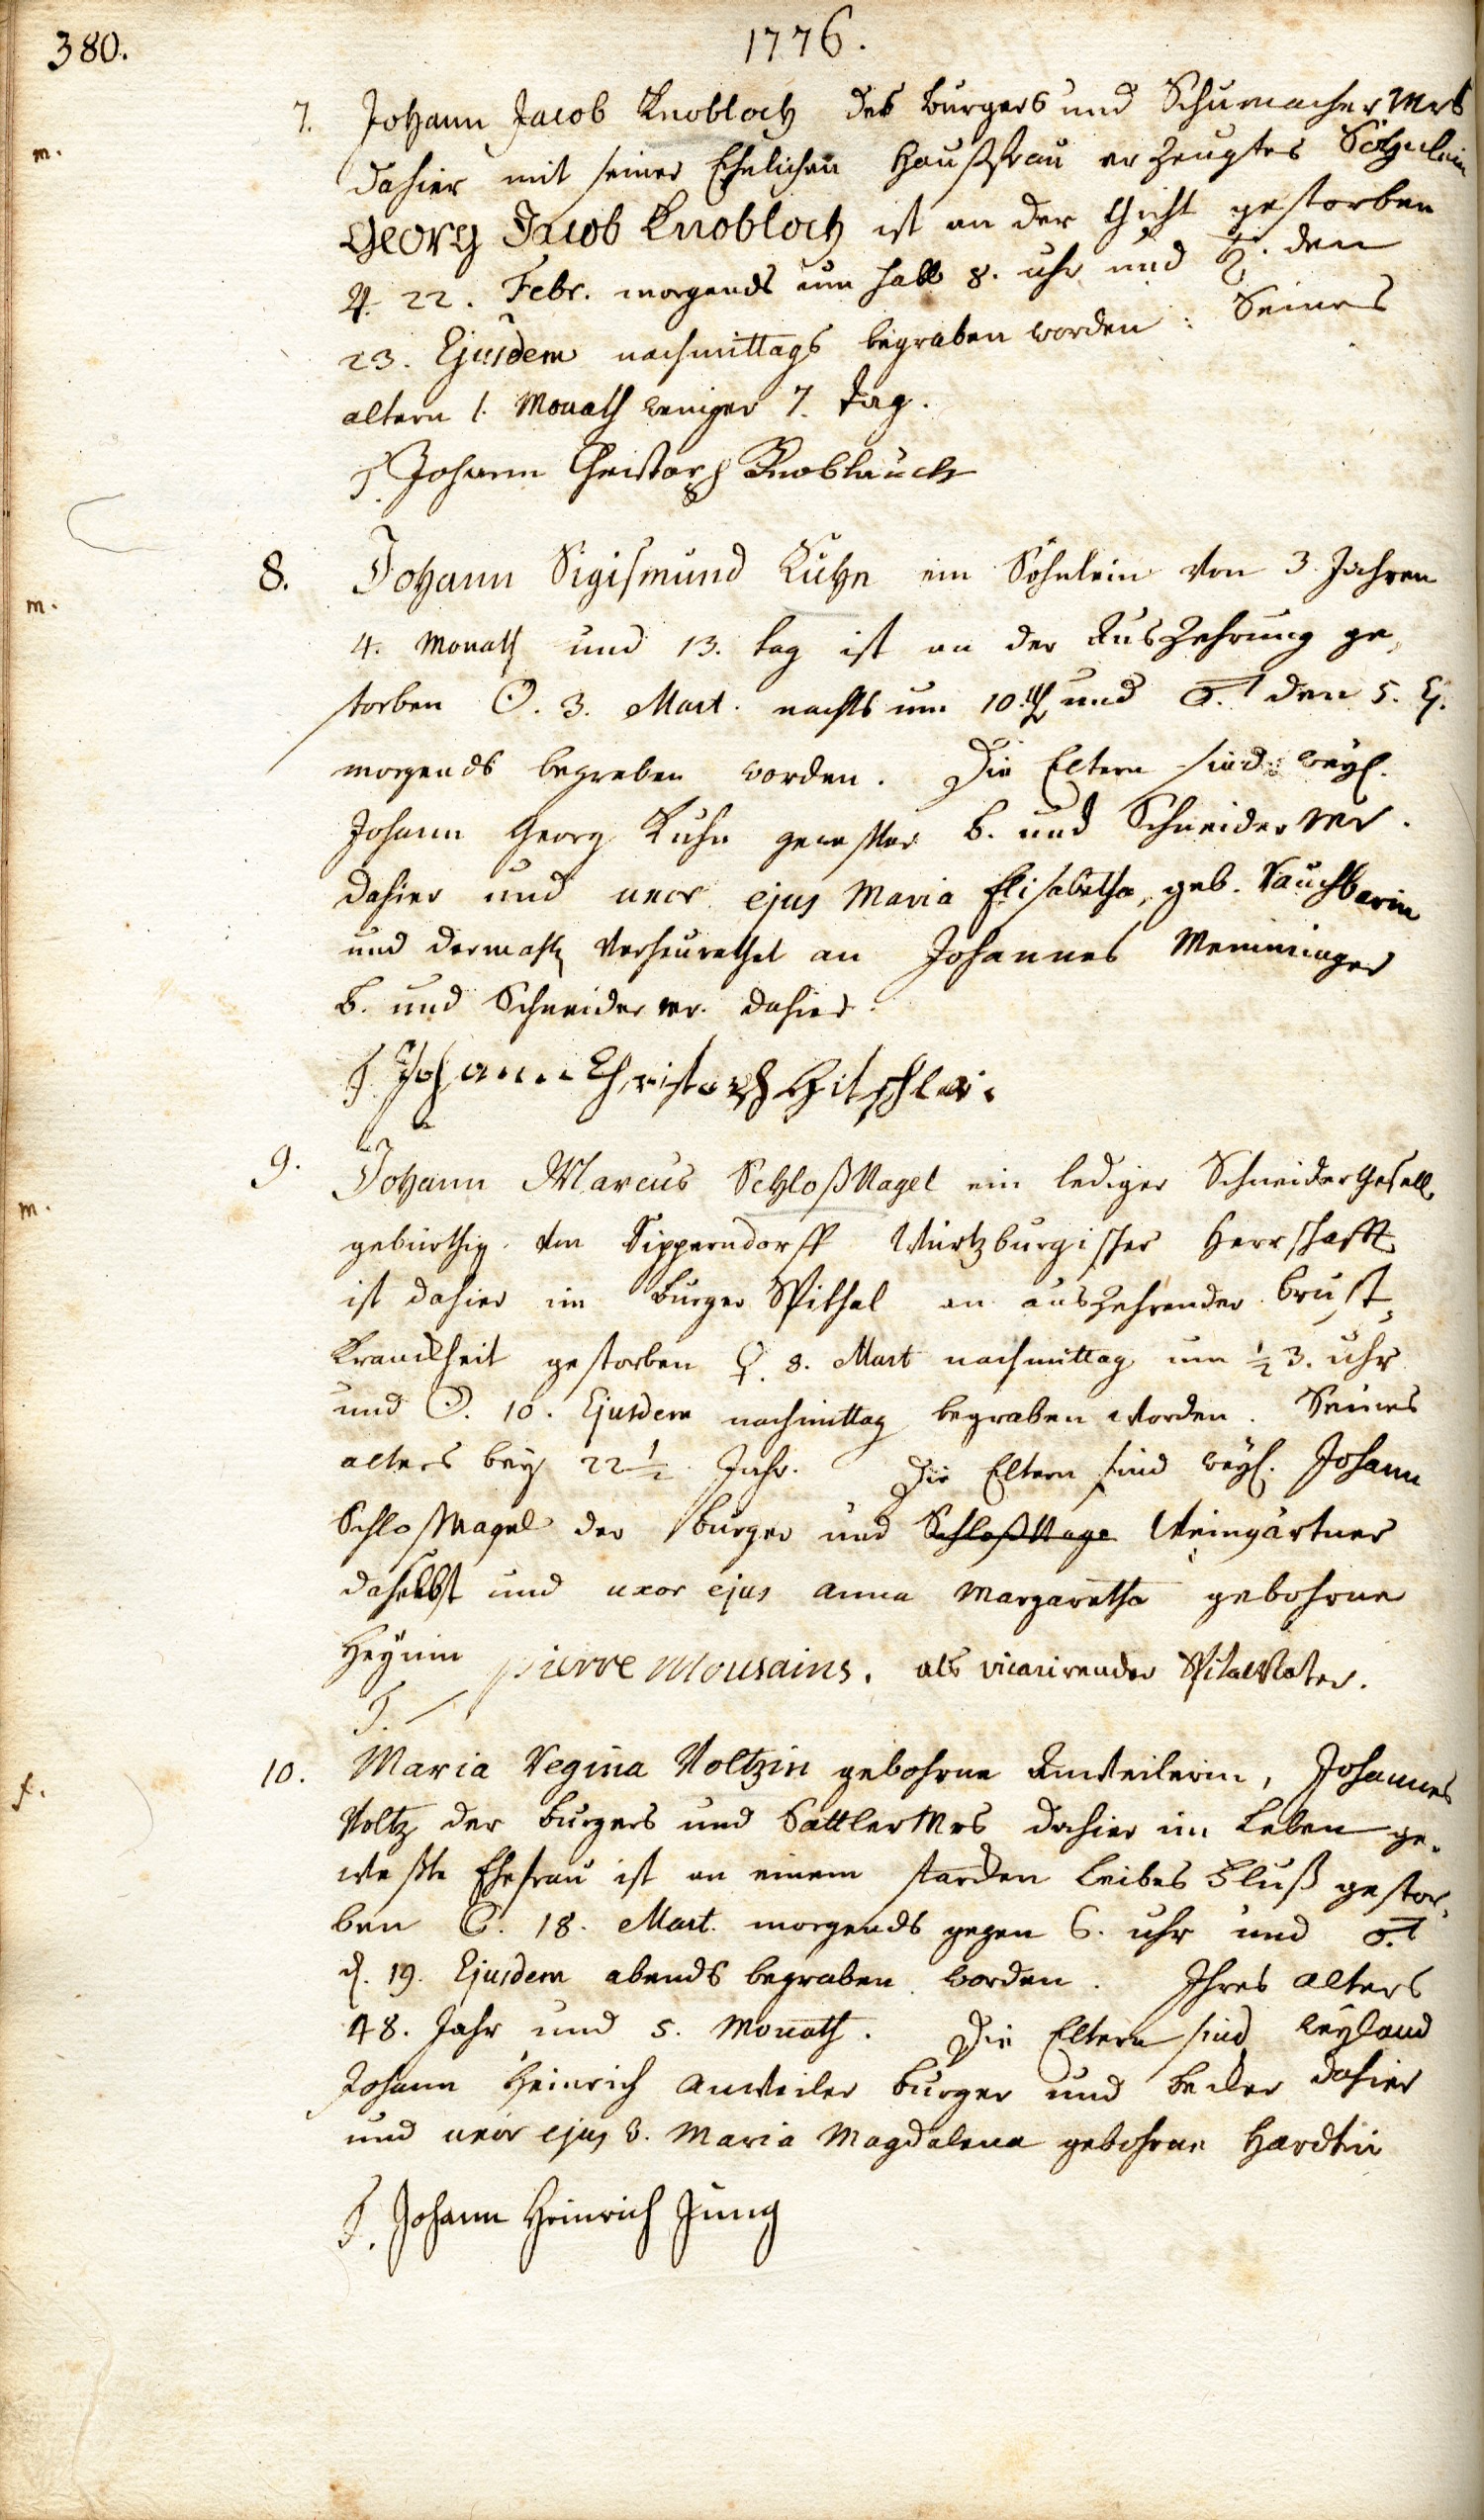 380.
1776.
7. Johann Jacob Knobloch des burgers und Schumacher Mrs
m.
dahier mit seiner Ehelichen Haußfrau erzeugtes Söhnlein
Georg Jacob Knobloch ist an der Gicht gestorben
♃. 22. Febr. morgends um halb 8. uhr und ♄. den
23. Ejusdem nachmittags begraben worden: Seines
altern 1. Monath weniger 7. tag.
T. Johann Christoph Knoblauch
8. Johann Sigismund Kuhn ein Söhnlein von 3 Jahren
m.
4. Monath und 13. tag ist an der Auszehrung ge-
storben ☉. 3. Mart. nachts um 10. und ♂. den 5. Ej.
morgends begraben worden. Die Eltern sind: weyl.
Johann Georg Kuhn gewester b. und Schneider Mr.
dahier und uxor ejus Maria Elisabetha, geb.
und dermahl verheurathet an Johannes Memminger
b. und Schneider mr. dahier.
T. Johann Christoph
9. Johann Marcus Schloßnagel ein lediger Schneidergesell
m.
gebürthig von Würtzburgischer Herrschafft
ist dahier im burger Spithal an auszehrender brust-
kranckheit gestorben ♀. 8. Mart nachmittag um ½ 3. uhr
und ☉. 10. Ejusdem nachmittag begraben worden. Seines
alters bey 22 ½ Jahr. Die Eltern sind weyl. Johann
Schloßnagel der burger und Schloßnage Weingärtner
daselbst und uxor ejus anna Margaretha gebohrne
Heynin Pierre Mousains. als vicarirender Spitalvater.
T.
10. Maria Regina Voltzin gebohrne Anweilerin, Johannes
f.
Voltz der burgers und Sattler Mrs dahier im Leben ge-
weste Ehefrau ist an einem starcken Leibes Fluß gestor-
ben ☾. 18. Mart. morgends gegen 6. uhr und ♂.
d. 19. Ejusdem abends begraben worden. Ihres alters
48. Jahr und 5. Monath. Die Eltern sind weyland
Johann Heinrich Anweiler burger und becker dahier
und uxor ejus 3. Maria Magdalena gebohrne Hardtin
T. Johann Heinrich Jung